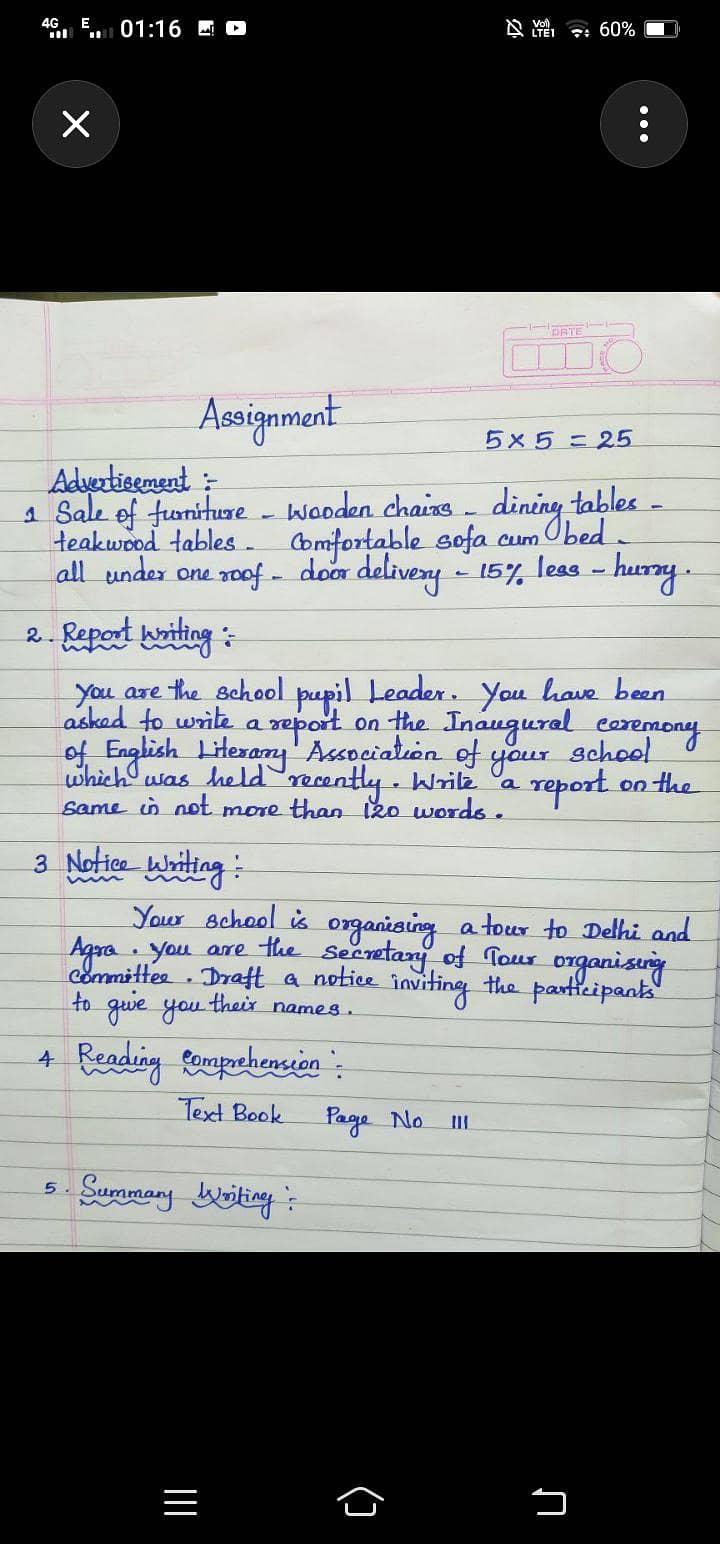 4G E 01:16 Vo)) LTE1 60%
DATE
Assignment
5 x 5 = 25
Advertisement :-
1 Sale of furniture - Wooden chairs - dining tables -
teakwood tables - Comfortable sofa cum bed -
all under one roof - door delivery - 15% less - hurry.
2. Report Writing :-
You are the school pupil Leader. You have been
asked to write a report on the Inaugural ceremony
of English Literary Association of your school
which was held recently. Write a report on the
same in not more than 120 words.
3 Notice Writing :-
Your school is organising a tour to Delhi and
Agra. You are the Secretary of Tour organising
committee. Draft a notice inviting the participants
to give you their names.
4 Reading Comprehension :-
Text Book Page No 111
5. Summary Writing :-